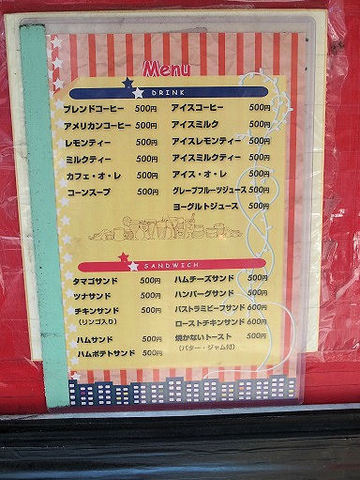 Menu
DRINK
ブレンドコーヒー 500円
アメリカンコーヒー 500円
レモンティー 500円
ミルクティー 500円
カフェ・オ・レ 500円
コーンスープ 500円
アイスコーヒー 500円
アイスミルク 500円
アイスレモンティー 500円
アイスミルクティー 500円
アイス・オ・レ 500円
グレープフルーツジュース 500円
ヨーグルトジュース 500円
SANDWICH
タマゴサンド 500円
ツナサンド 500円
チキンサンド 500円
(リンゴ入り)
ハムサンド 500円
ハムポテトサンド 500円
ハムチーズサンド 500円
ハンバーグサンド 500円
パストラミビーフサンド 600円
ローストチキンサンド 600円
焼かないトースト 500円
(バター・ジャム付)